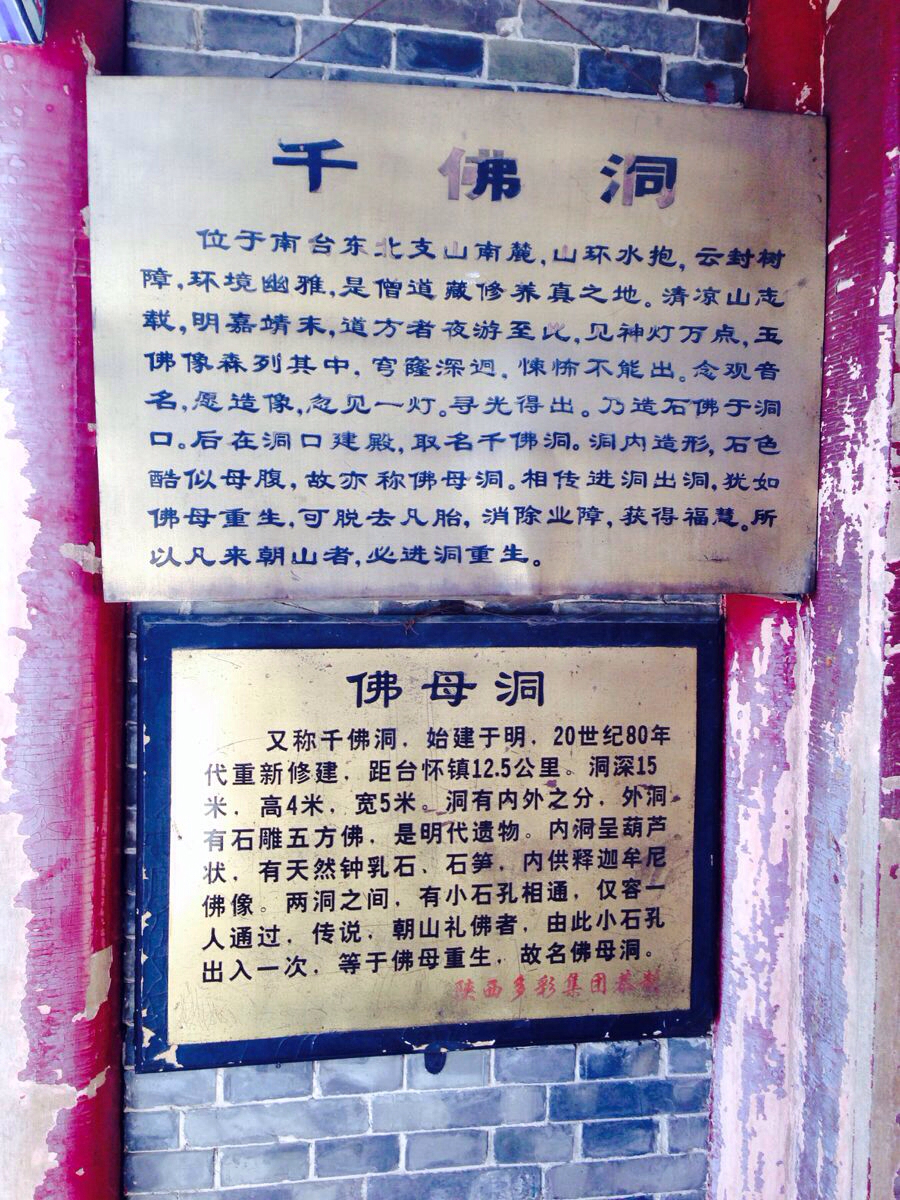 千佛洞
位于南台东北支山南麓,山环水抱,云封树
障,环境幽雅,是僧道藏修养真之地。清凉山志
载,明嘉靖末,道方者夜游至此,见神灯万点,玉
佛像森列其中,穹窿深迥,悚怖不能出。念观音
名,愿造像,忽见一灯。寻光得出。乃造石佛于洞
口。后在洞口建殿,取名千佛洞。洞内造形,石色
酷似母腹,故亦称佛母洞。相传进洞出洞,犹如
佛母重生,可脱去凡胎,消除业障,获得福慧。所
以凡来朝山者,必进洞重生。
佛母洞
又称千佛洞，始建于明，20世纪80年
代重新修建，距台怀镇12.5公里。洞深15
米，高4米，宽5米。洞有内外之分，外洞
有石雕五方佛，是明代遗物。内洞呈葫芦
状，有天然钟乳石、石笋，内供释迦牟尼
佛像。两洞之间，有小石孔相通，仅容一
人通过，传说，朝山礼佛者，由此小石孔
出入一次，等于佛母重生，故名佛母洞。
陕西多彩集团恭制